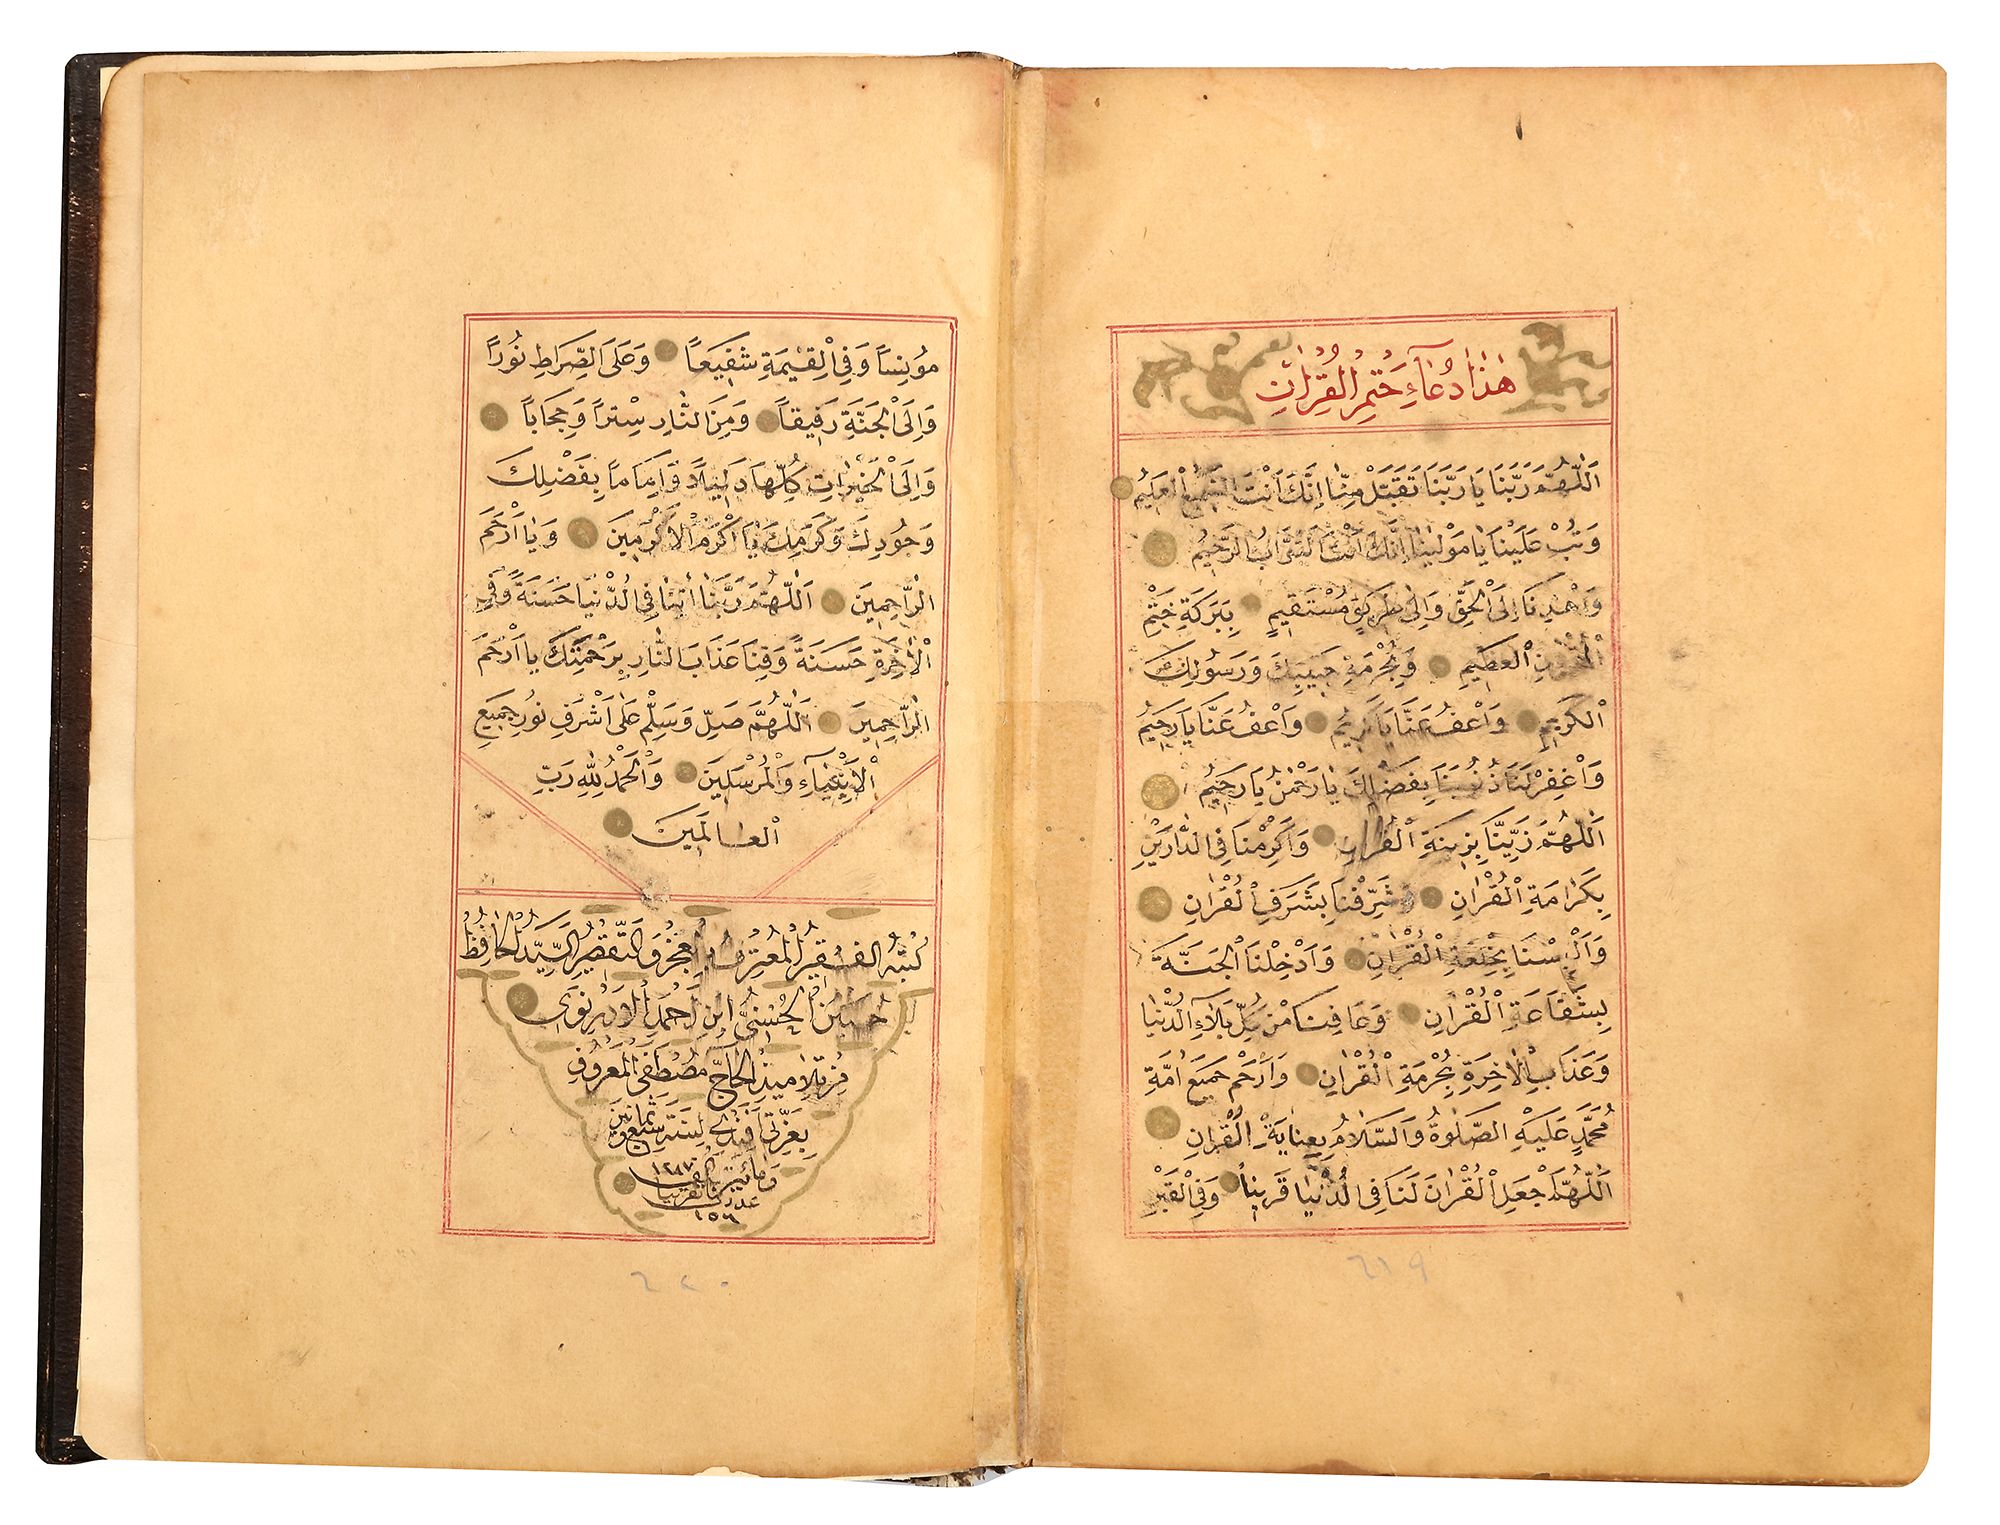 هٰذَا دُعَاءِ خَتْمِ الْقُرْاٰنِ
اَللّٰهُمَّ رَبَّنَا يَا رَبَّنَا تَقَبَّلْ مِنَّا اِنَّكَ اَنْتَ السَّمِيعُ الْعَلِيمُ
وَتُبْ عَلَيْنَا يَا مَوْلٰينَا اِنَّكَ اَنْتَ التَّوَّابُ الرَّحِيمُ
وَاهْدِنَا اِلَى الْحَقِّ وَاِلٰى طَرِيقٍ مُسْتَقِيمٍ بِبَرَكَةِ خَتْمِ
الْقُرْاٰنِ الْعَظِيمِ وَبِحُرْمَةِ حَبِيبِكَ وَرَسُولِكَ
الْكَرِيمِ وَاعْفُ عَنَّا يَا كَرِيمُ وَاعْفُ عَنَّا يَا رَحِيمُ
وَاغْفِرْ لَنَا ذُنُوبَنَا بِفَضْلِكَ يَا رَحْمٰنُ يَا رَحِيمُ
اَللّٰهُمَّ زَيِّنَّا بِزِينَةِ الْقُرْاٰنِ وَاَكْرِمْنَا فِى الدَّارَيْنِ
بِكَرَامَةِ الْقُرْاٰنِ وَشَرِّفْنَا بِشَرَفِ الْقُرْاٰنِ
وَاَلْبِسْنَا بِخِلْعَةِ الْقُرْاٰنِ وَاَدْخِلْنَا الْجَنَّةَ
بِشَفَاعَةِ الْقُرْاٰنِ وَعَافِنَا مِنْ كُلِّ بَلَاءِ الدُّنْيَا
وَعَذَابِ الْاٰخِرَةِ بِحُرْمَةِ الْقُرْاٰنِ وَارْحَمْ جَمِيعَ اُمَّةِ
مُحَمَّدٍ عَلَيْهِ الصَّلٰوةُ وَالسَّلَامُ بِعِنَايَةِ الْقُرْاٰنِ
اَللّٰهُمَّ اجْعَلِ الْقُرْاٰنَ لَنَا فِى الدُّنْيَا قَرِيناً وَفِى الْقَبْرِ
٦١٩
مُونِساً وَفِى الْقِيٰمَةِ شَفِيعاً وَعَلَى الصِّرَاطِ نُوراً
وَاِلَى الْجَنَّةِ رَفِيقاً وَمِنَ النَّارِ سِتْراً وَحِجَاباً
وَاِلَى الْخَيْرَاتِ كُلِّهَا دَلِيلاً وَاِمَاماً بِفَضْلِكَ
وَجُودِكَ وَكَرَمِكَ يَا اَكْرَمَ الْاَكْرَمِينَ وَيَا اَرْحَمَ
الرَّاحِمِينَ اَللّٰهُمَّ رَبَّنَا اٰتِنَا فِى الدُّنْيَا حَسَنَةً وَفِى
الْاٰخِرَةِ حَسَنَةً وَقِنَا عَذَابَ النَّارِ بِرَحْمَتِكَ يَا اَرْحَمَ
الرَّاحِمِينَ اَللّٰهُمَّ صَلِّ وَسَلِّمْ عَلٰى اَشْرَفِ نُورِ جَمِيعِ
الْاَنْبِيَاءِ وَالْمُرْسَلِينَ وَالْحَمْدُ لِلّٰهِ رَبِّ
الْعَالَمِينَ
كَتَبَهُ الْفَقِيرُ الْمُعْتَرِفُ بِالْعَجْزِ وَالتَّقْصِيرِ السَّيِّدُ الْحَافِظُ
حُسَيْنُ الْحُسْنِيُّ ابْنِ اَحْمَدَ الْاَدِرْنَوِى
مِنْ تَلَامِيذِ الْحَاجِّ مُصْطَفَى الْمَعْرُوفِ
بِعَزَّتِى اَفَنْدِى لِسَنَةِ سَبْعٍ وَثَمَانِينَ
وَمِائَتَيْنِ وَاَلْفٍ ١٢٨٧
عدد
١٥٦
٦٢٠